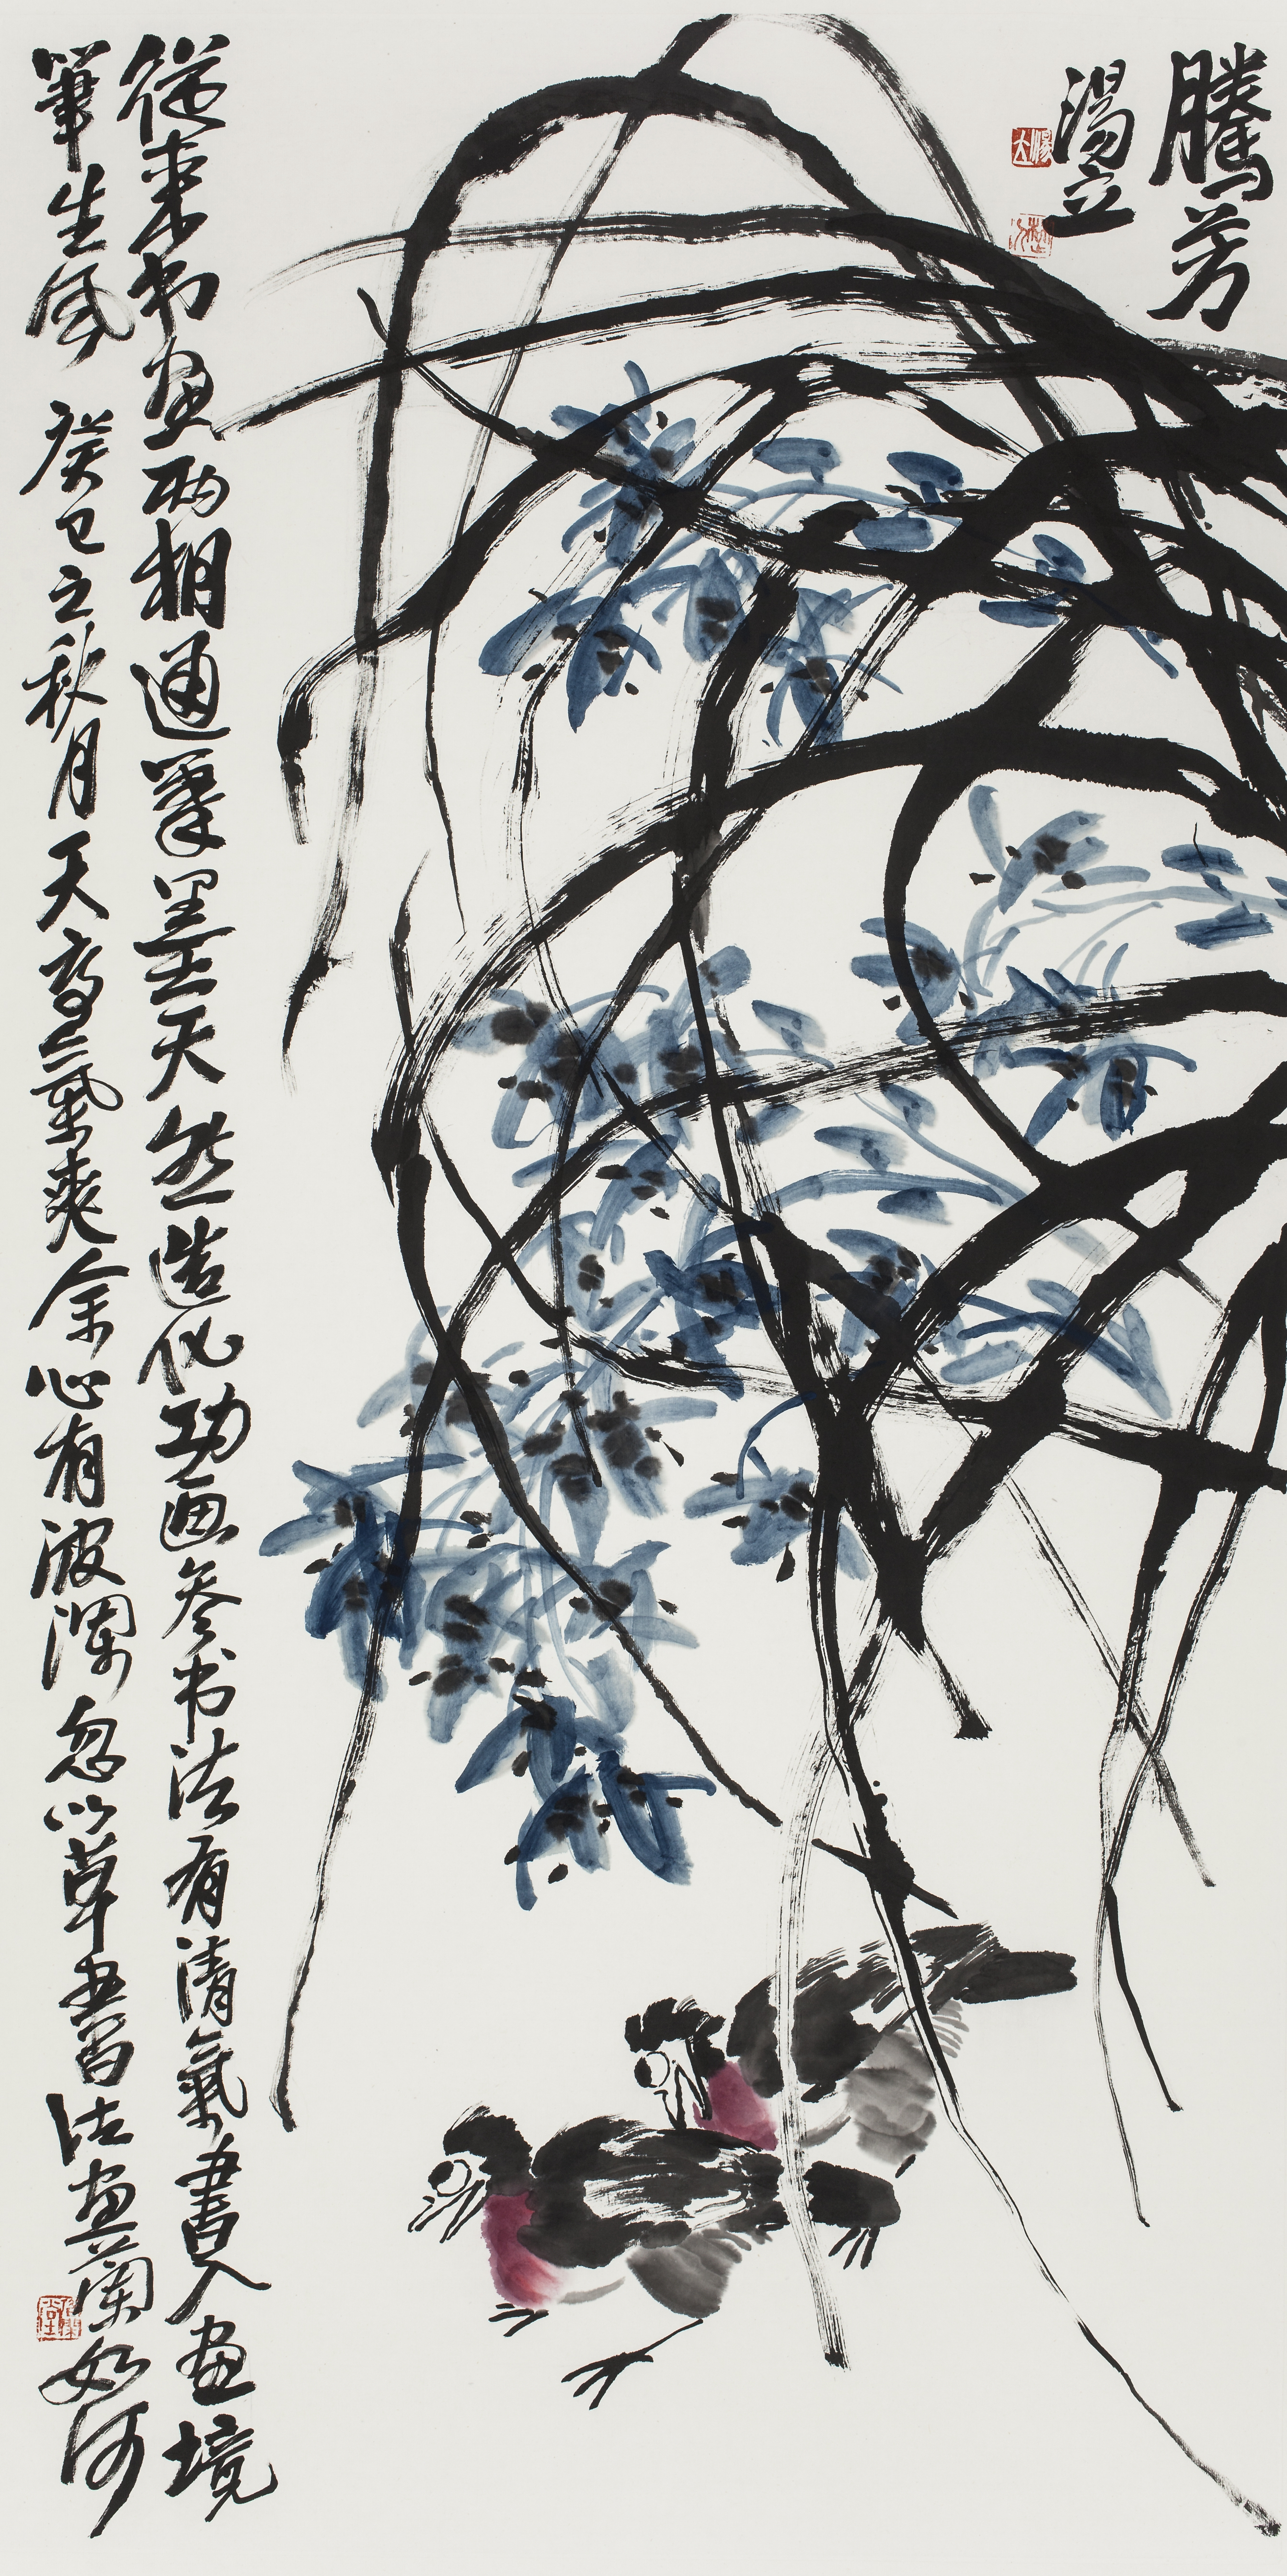 騰芳
湯立
從来书画两相通筆墨天然造化功画参书法有清氣書入画境
筆生風 癸巳之秋月天高氣爽余心有波瀾忽以草書法画蘭如何